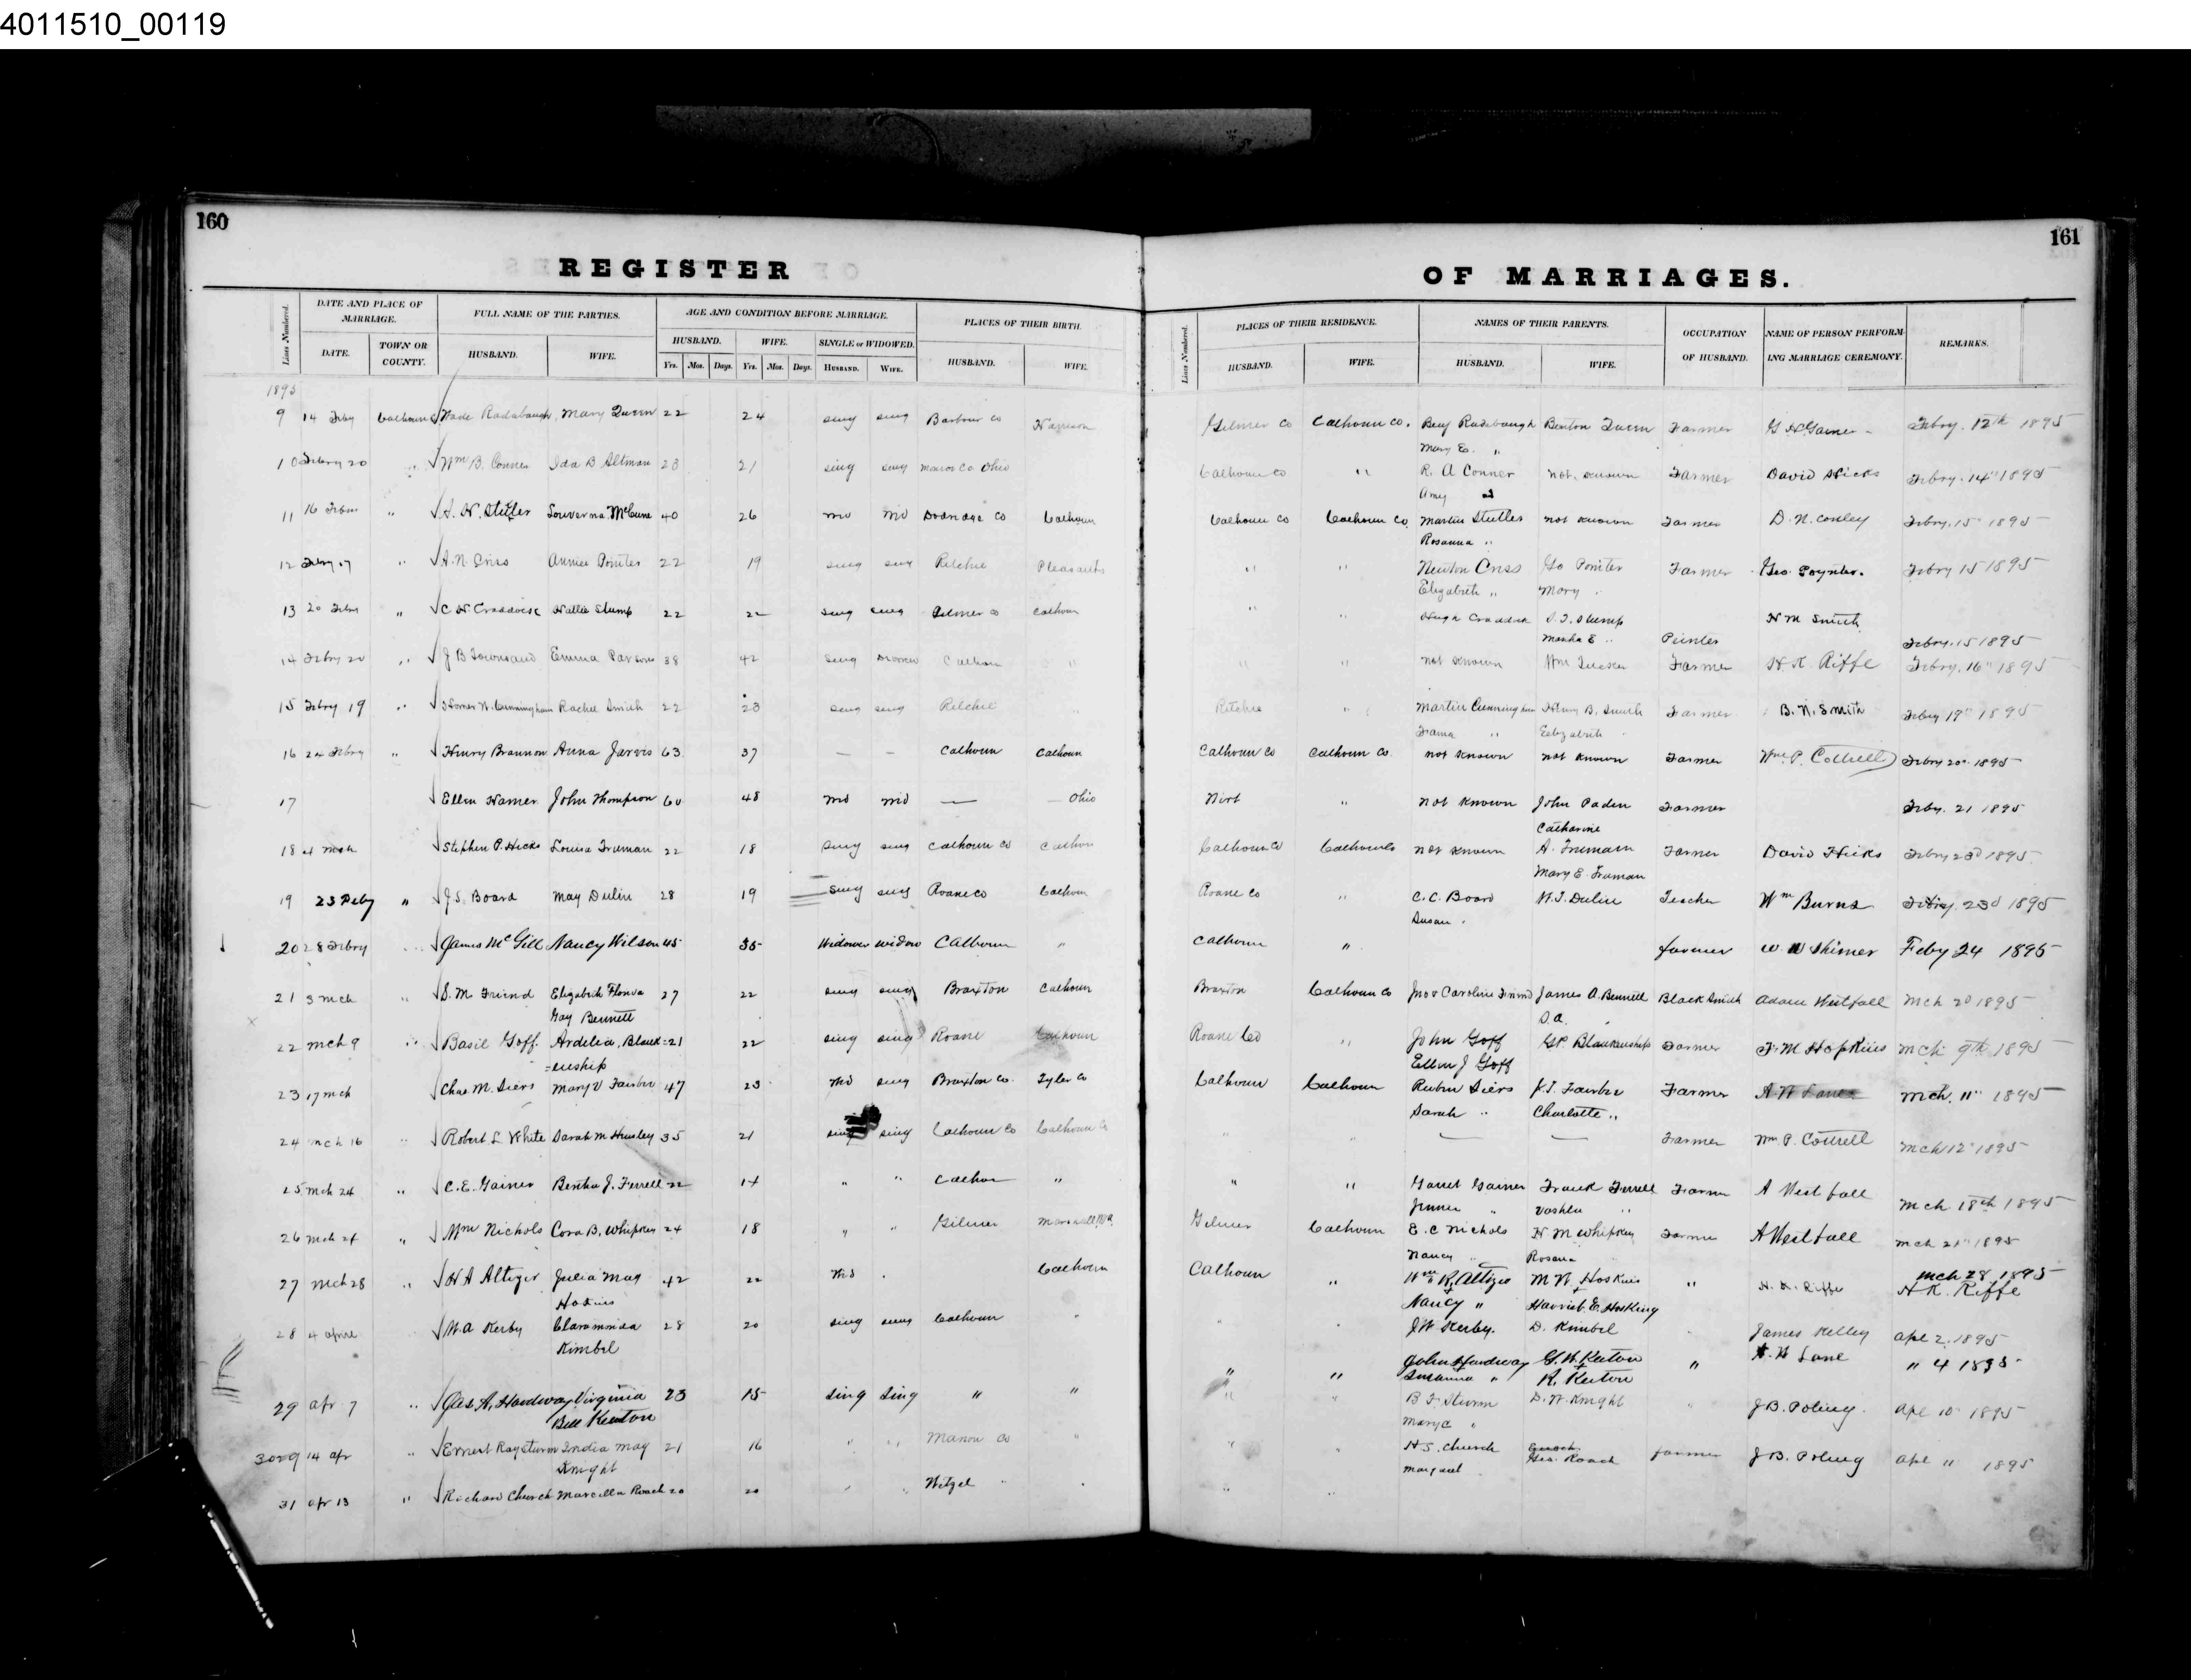 4011510_00119
160
161
REGISTER
OF MARRIAGES.
Lines Numbered.
DATE AND PLACE OF MARRIAGE.
FULL NAME OF THE PARTIES.
AGE AND CONDITION BEFORE MARRIAGE.
PLACES OF THEIR BIRTH.
DATE.
TOWN OR COUNTY.
HUSBAND.
WIFE.
HUSBAND.
WIFE.
SINGLE or WIDOWED.
HUSBAND.
WIFE.
Yrs. Mos. Days. Yrs. Mos. Days. HUSBAND. WIFE.
Lines Numbered.
PLACES OF THEIR RESIDENCE.
NAMES OF THEIR PARENTS.
OCCUPATION OF HUSBAND.
NAME OF PERSON PERFORMING MARRIAGE CEREMONY.
REMARKS.
HUSBAND. WIFE. HUSBAND. WIFE.
1895
9 14 Feby Calhoun Wade Radabaugh Mary Quinn 22 24 sing sing Barbour Co Harrison Gilmer Co Calhoun Co. Benj Radabaugh Benton Quinn Farmer Febry. 12th 1895
Mary E. "
10 Febry 20 " Wm B. Conner Ida B Altman 23 21 sing sing Monroe Co Ohio Calhoun Co " R. A Conner not known Farmer David Hicks Febry. 14" 1895
Amy "
11 16 Febry " Souverna McCune 40 26 Wid Wid Dodridge Co Calhoun Calhoun Co Calhoun Co. Martin Stutler not known Farmer D. N. Conley Febry. 15" 1895
Rosanna "
12 Febry 17 " A. N. Criss Annie Pointer 22 19 sing sing Ritchie Pleasants " " Newton Criss Go Pointer Farmer Geo. Poynter. Febry 15 1895
Elizabeth " Mary
13 20 Febry " Hallie Stump 22 22 sing sing Gilmer Co Calhoun " " Hugh Craddock S. T. Stump H M Smith
Martha E " Febry. 15 1895
14 Febry 20 " J B Townsand Emma Parsons 38 42 sing Calhoun " " " not known Farmer H. K. Riffe Febry. 16" 1895
15 Febry 19 " Homer N. Cunningham Rachel Smith 22 23 sing sing Ritchie " Ritchie " Martin Cunningham Henry B. Smith Farmer B. N. Smith Febry 19" 1895
Elizabeth
16 22 Febry " Henry Brannon Anna Jarvis 63 37 — — Calhoun Calhoun Calhoun Co Calhoun Co. not known not known Farmer Wm. P. Cottrell Febry 20" 1895
17 Ellen Hamer John Thompson 60 48 Wid Wid — Ohio Wirt " not known John Paden Farmer Feby. 21 1895
Catharine
18 4 Mch Stephen P. Hicks Louisa Truman 22 18 sing sing Calhoun Co Calhoun Calhoun Co Calhoun Co not known A. Trumain Farmer David Hicks Febry 23d 1895
Mary E. Truman
19 23 Feby " J. S. Board May Dulin 28 19 sing sing Roane Co Calhoun Roane Co " C. C. Board W. T. Dulin Teacher Wm Burns Febry. 23d 1895
Susan "
20 28 Febry " James McGill Nancy Wilson 45 35 Widower widow Calhoun " Calhoun " farmer W W Shimer Feby 24 1895
21 3 Mch " S. M. Friend Elizabeth Flonva 27 22 sing sing Braxton Calhoun Braxton Calhoun Co Jno & Caroline Friend James A. Bennett Black Smith Adam Westfall Mch 2d 1895
Gay Bennett S. A.
22 Mch 9 " Basil Goff Ardelia Blank= 21 22 sing sing Roane Calhoun Roane Co " John Goff G.P. Blankenship Farmer F. M Hopkins Mch 9th 1895
=enship Ellen J Goff
23 17 Mch Chas. M. Siers Mary V Fairbee 47 23 Wid sing Braxton Co. Tyler Co Calhoun Calhoun Rubin Siers J. T. Fairbee Farmer A W Lane Mch. 11" 1895
Sarah " Charlotte "
24 Mch 16 " Robert L White Sarah M Hensley 35 21 sing sing Calhoun Co Calhoun Co " " — — Farmer Wm. P. Cottrell Mch 12" 1895
25 Mch 24 " C. E. Gainer Bertha J. Ferrell 22 17 " " Calhoun " " " Garret Gainer Frank Ferrell Farmer A Westfall Mch 18th 1895
Jennie " Vashta "
26 Mch 24 " Wm Nichols Cora B. Whipkey 24 18 " " Gilmer Gilmer Calhoun E. C Nichols H M Whipkey Farmer A Westfall Mch 21" 1895
Nancy " Rosana
27 Mch 28 " W A Altizer Julia May 42 22 Wid Calhoun Calhoun " Wm R. Altizer M W. Hoskins " H. K. Riffe Mch 28, 1895
Hoskins Nancy " Harriet. E. Hosking H.K. Riffe
28 4 April W. A Kerby Claraminda 28 20 sing sing Calhoun " " " J W Kerby. D. Kimbel James Kelley Apl 2. 1895
Kimbel
John Hardway G. W. Keeton " A. W Lane " 4 1895
Susanna " R. Keeton
29 Apr 7 " Jas. A. Hardway Virginia 23 15 sing sing " " " "
Bell Keeton
B F Sturm D. W. Knight J B. Poling Apl 10" 1895
Mary C "
30 14 Apr " Ernest Ray Sturm India May 21 16 " " Marion Co "
Knight
H S. Church Geo. Roach farmer J B. Poling Apl 11 1895
Margaret
31 Apr 13 " Richard Church Marcella Roach 20 20 " " Wetzel